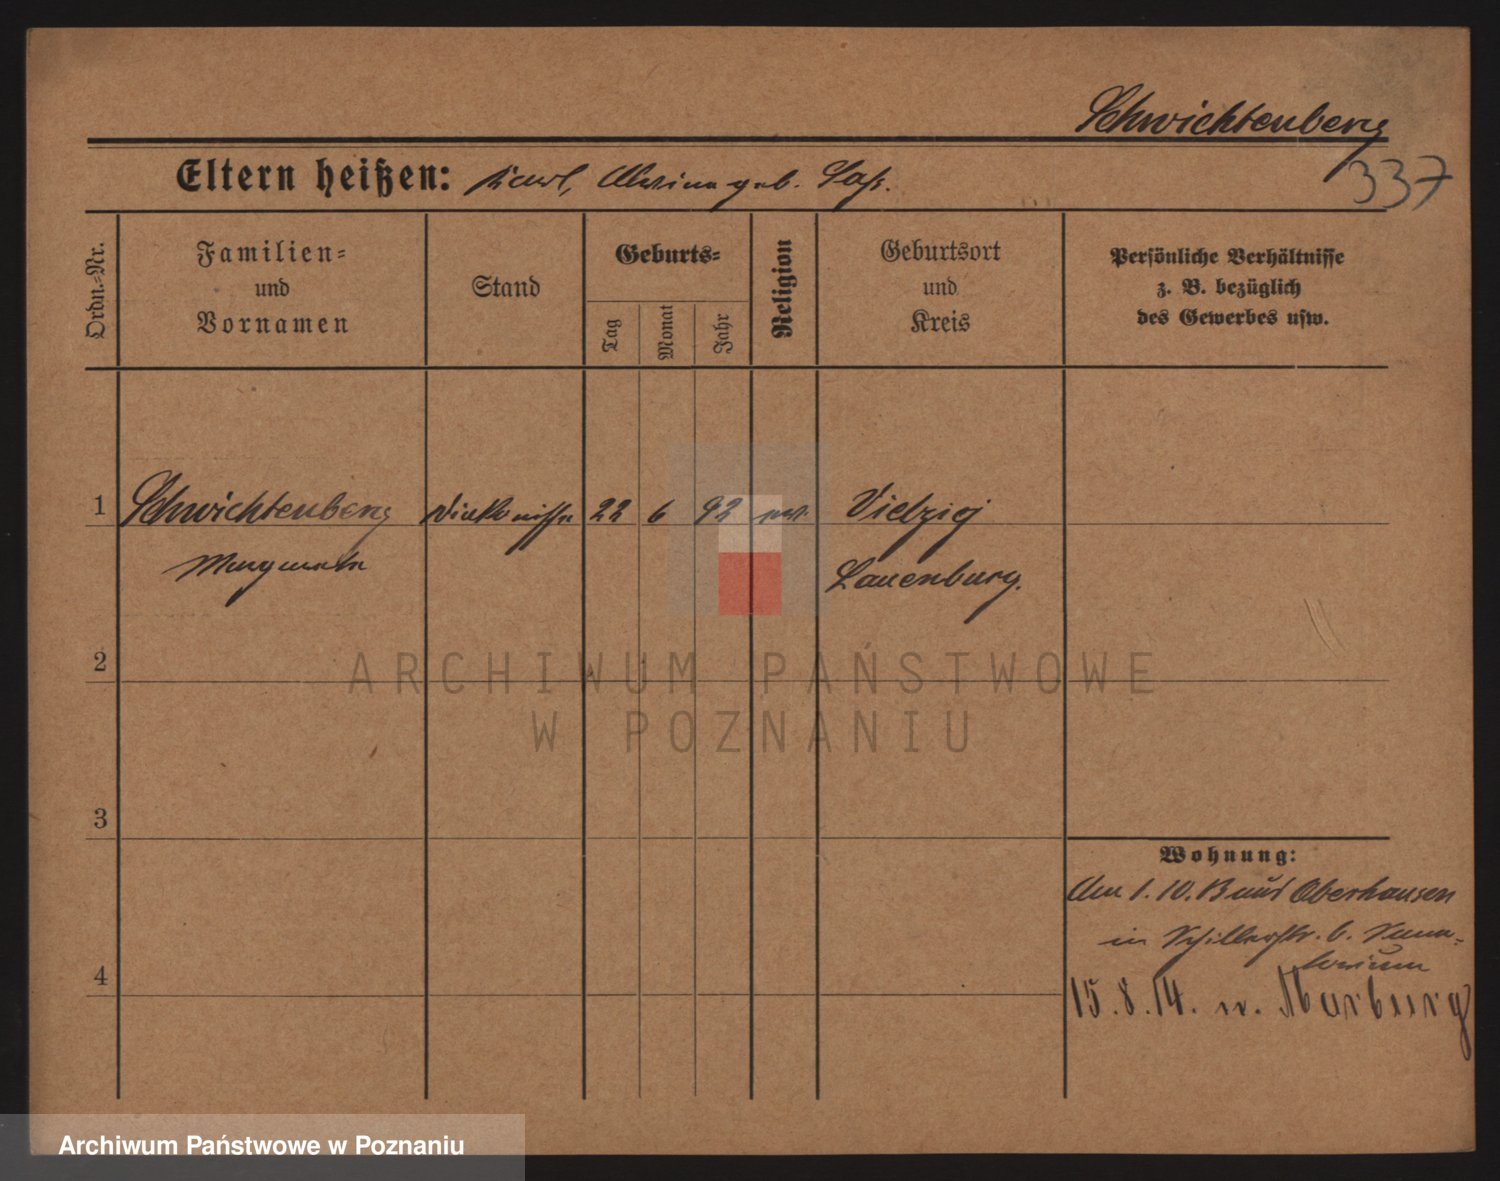 Schwichtenberg
337
Eltern heißen: Karl, Alwine geb. Laß.
Ordn.-Nr.
Familien=
und
Vornamen
Stand
Geburts=
Tag
Monat
Jahr
Religion
Geburtsort
und
Kreis
Persönliche Verhältnisse
z. B. bezüglich
des Gewerbes usw.
1 Schwichtenberg Diakonisse 22 6 92 ev. Vietzig
Margarete Lauenburg.
2
3
4
Wohnung:
Am 1.10.13 aus Oberhausen
in Schillerstr. 6. Sana=
torium
15.8.14. n. Marburg
ARCHIWUM PAŃSTWOWE
W POZNANIU
Archiwum Państwowe w Poznaniu